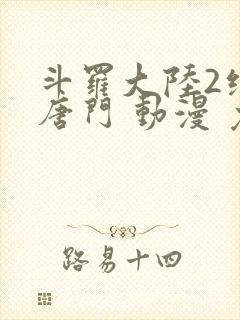 斗羅大陸2
唐門 動漫
路易十四